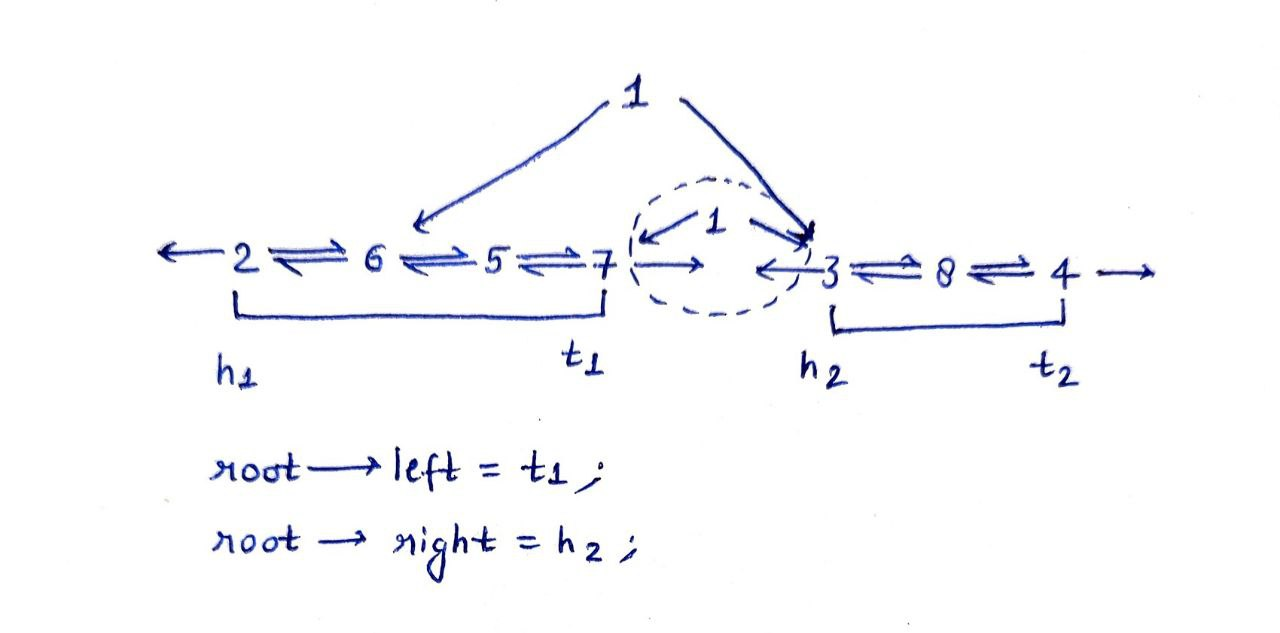 1
1
← 2 ⇌ 6 ⇌ 5 ⇌ 7 → ← 3 ⇌ 8 ⇌ 4 →
h1 t1 h2 t2
root → left = t1 ;
root → right = h2 ;